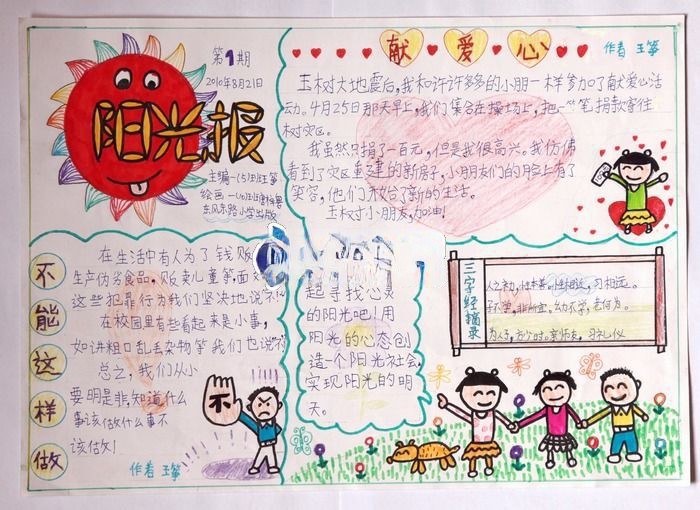 第1期
2010年8月21日
阳光报
主编
绘画
东风东路小学出版
献爱心
作者 王筝
玉树大地震后,我和许许多多的小朋一样参加了献爱心活
动。4月25日那天早上,我们集合在操场上,把一笔笔捐款寄往
树灾区。
我虽然只捐了一百元,但是我很高兴。我仿佛
看到了灾区重建的新房子,小朋友们的脸上有了
笑容,他们开始了新的生活。
玉树小朋友,加油!
不能这样做
在生活中有人为了钱贩
生产伪劣食品,贩卖儿童等,面对
这些犯罪行为我们坚决地说
在校园里有些看起来是小事,
如讲粗口乱丢杂物等我们也说
总之,我们从小
要明是非,知道什么
事该做什么事不
该做!
作者 王筝
不
起寻找心灵
的阳光吧!用
阳光的心态创
造一个阳光社会,
实现阳光的明
天。
三字经摘录
人之初,性本善。性相近,习相远。
子不学,非所宜。幼不学,老何为。
为人子,方少时。亲师友,习礼仪